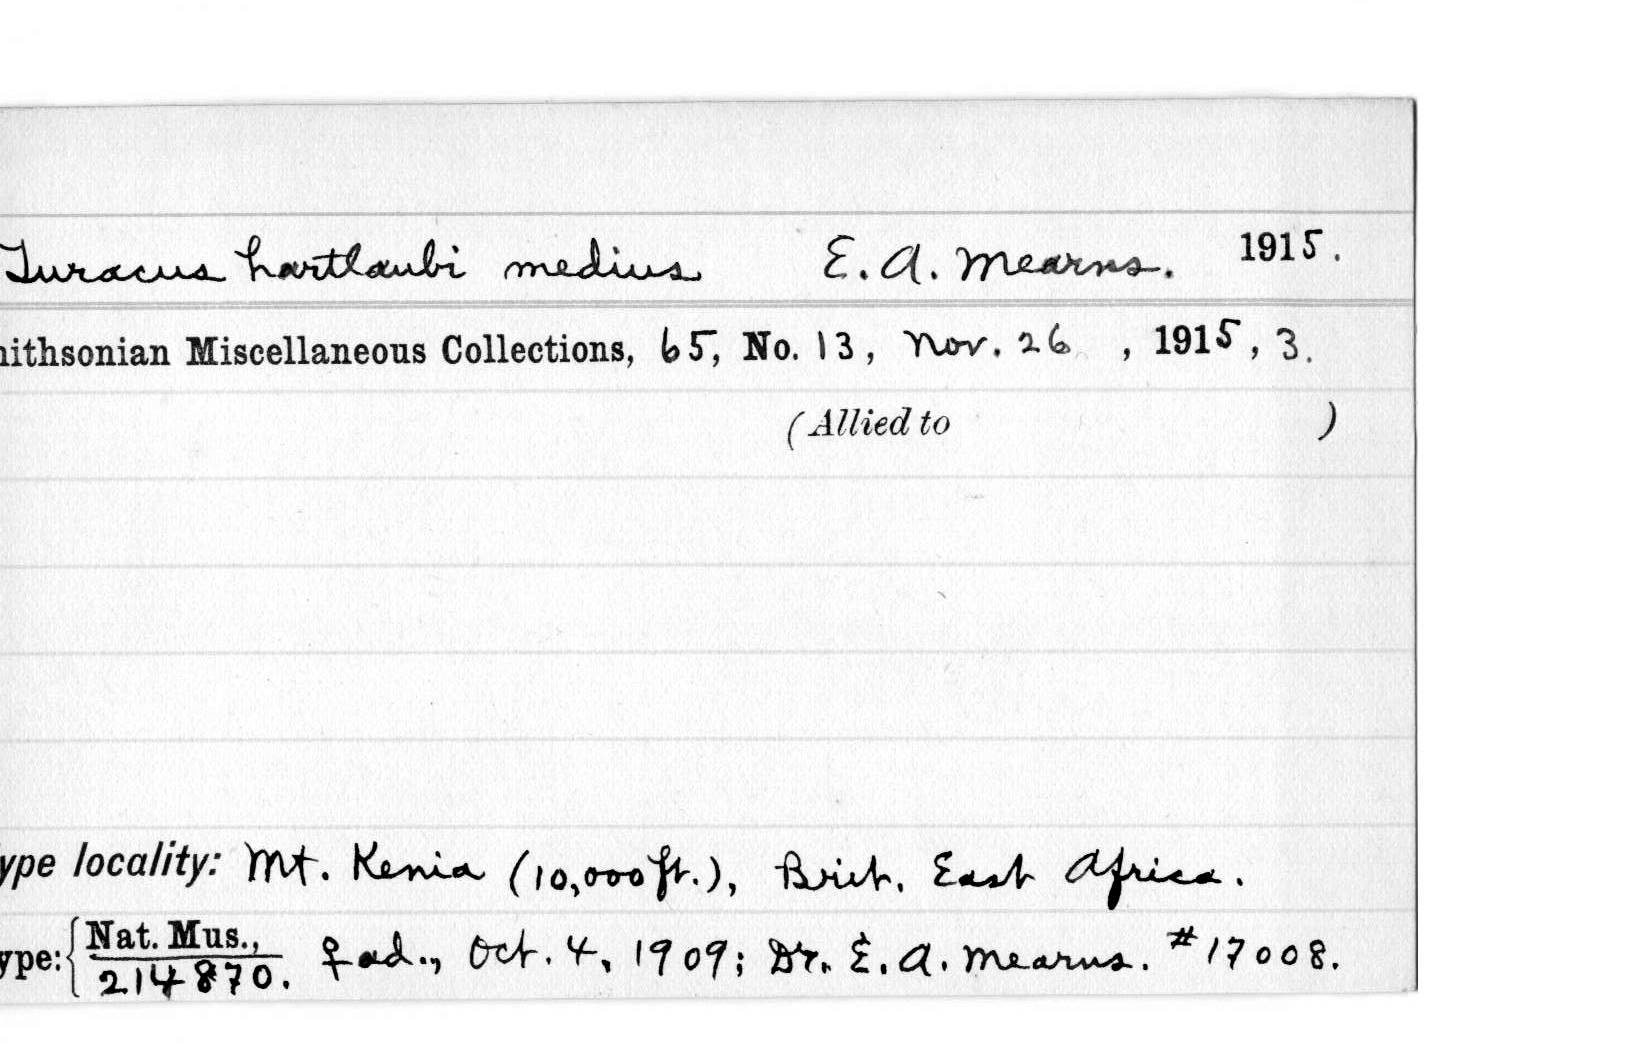 Turacus hartlaubi medius E. A. Mearns. 1915.
ithsonian Miscellaneous Collections, 65, No. 13, Nov. 26 , 1915, 3.
(Allied to )
ype locality: Mt. Kenia (10,000 ft.), Brit. East Africa.
ype: { Nat. Mus., 214870. ♀ ad., Oct. 4, 1909; Dr. E. A. Mearns. #17008.